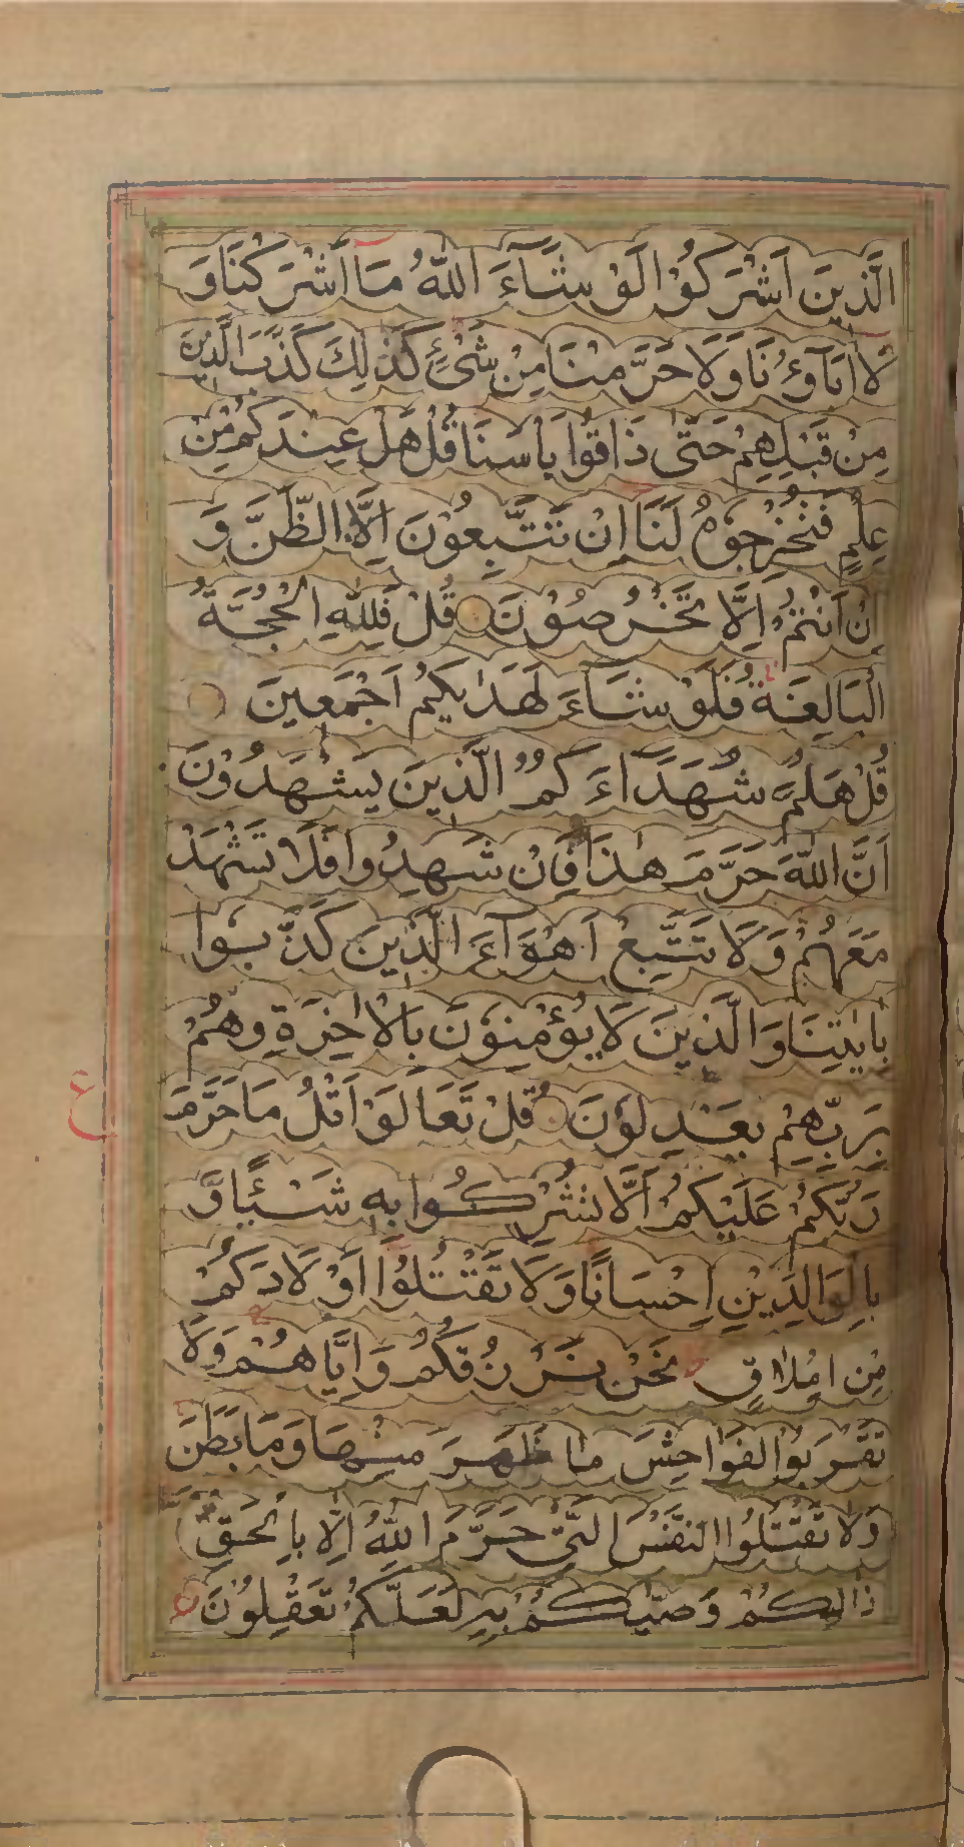 الَّذِينَ اَشْرَكُوْا لَوْ شَآءَ اللّٰهُ مَا اَشْرَكْنَا وَ
لَا اٰبَآؤُنَا وَلَا حَرَّمْنَا مِنْ شَیْءٍ كَذٰلِكَ كَذَّبَ الَّذِيْنَ
مِنْ قَبْلِهِمْ حَتّٰى ذَاقُوا بَاْسَنَا قُلْ هَلْ عِنْدَكُمْ مِنْ
عِلْمٍ فَتُخْرِجُوْهُ لَنَا اِنْ تَتَّبِعُوْنَ اِلَّا الظَّنَّ وَ
اِنْ اَنْتُمْ اِلَّا تَخْرُصُوْنَ قُلْ فَلِلّٰهِ الْحُجَّةُ
الْبَالِغَةُ فَلَوْ شَآءَ لَهَدٰيكُمْ اَجْمَعِينَ
قُلْ هَلُمَّ شُهَدَآءَ كُمُ الَّذِينَ يَشْهَدُوْنَ
اَنَّ اللّٰهَ حَرَّمَ هٰذَا فَاِنْ شَهِدُوا فَلَا تَشْهَدْ
مَعَهُمْ وَلَا تَتَّبِعْ اَهْوَآءَ الَّذِينَ كَذَّبُوا
بِاٰيٰتِنَا وَالَّذِينَ لَا يُؤْمِنُوْنَ بِالْاٰخِرَةِ وَهُمْ
بِرَبِّهِمْ يَعْدِلُوْنَ قُلْ تَعَالَوْا اَتْلُ مَا حَرَّمَ
رَبُّكُمْ عَلَيْكُمْ اَلَّا تُشْرِكُوا بِهِ شَيْئًا وَّ
بِالْوَالِدَيْنِ اِحْسَانًا وَلَا تَقْتُلُوْا اَوْلَادَكُمْ
مِّنْ اِمْلَاقٍ نَحْنُ نَرْزُقُكُمْ وَاِيَّاهُمْ وَلَا
تَقْرَبُوا الفَوَاحِشَ مَا ظَهَرَ مِنْهَا وَمَا بَطَنَ
وَلَا تَقْتُلُوا النَّفْسَ الَّتِیْ حَرَّمَ اللّٰهُ اِلَّا بِالْحَقِّ
ذٰالِكُمْ وَصّٰيكُمْ بِهِ لَعَلَّكُمْ تَعْقِلُوْنَ
ع